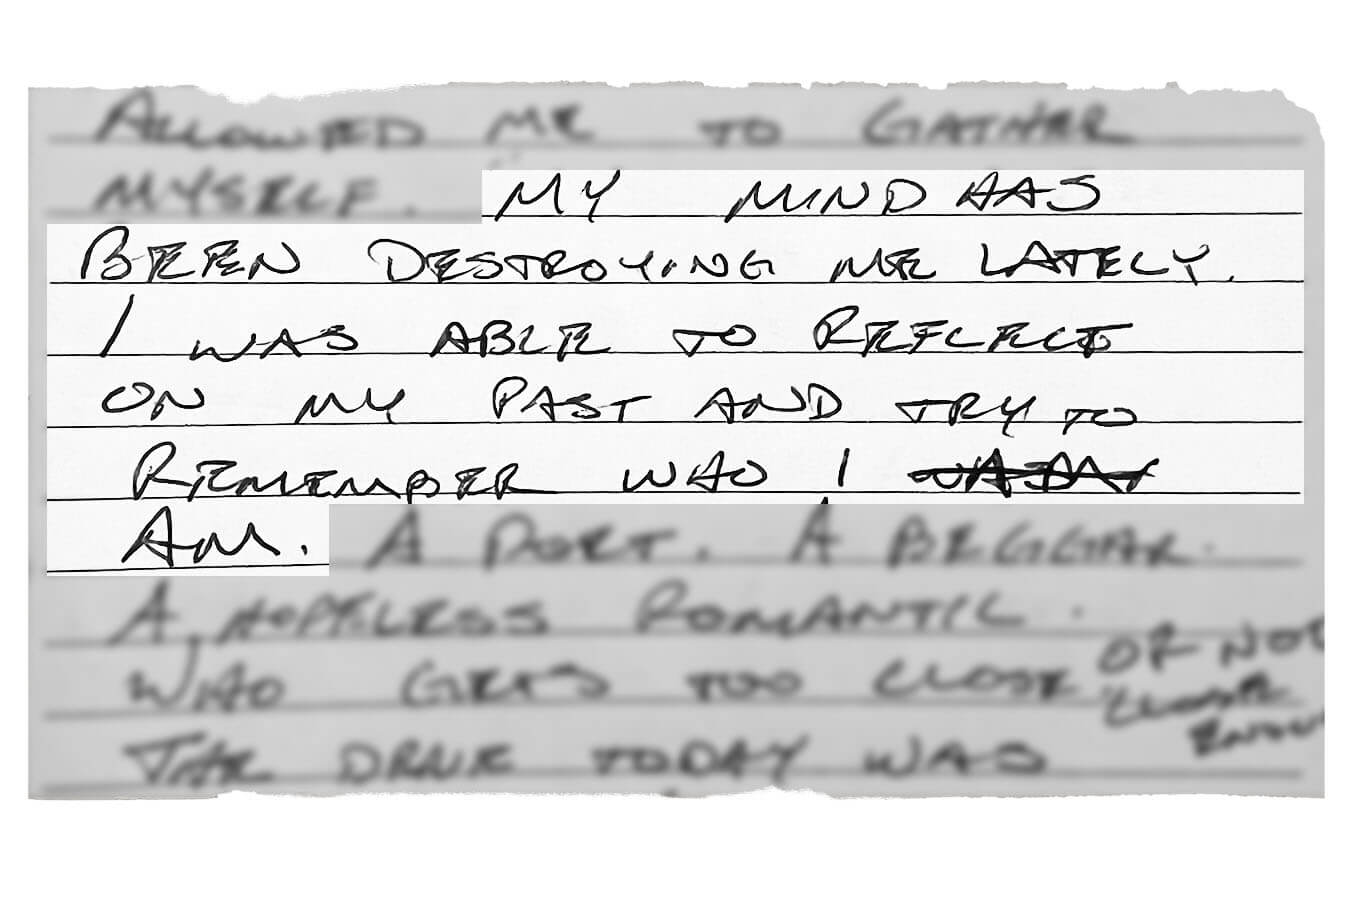 ALLOWED ME TO GATHER
MYSELF. MY MIND HAS
BEEN DESTROYING ME LATELY.
I WAS ABLE TO REFLECT
ON MY PAST AND TRY TO
REMEMBER WHO I
AM. A POET. A BEGGAR.
A HOPELESS ROMANTIC.
WHO GETS TOO CLOSE
OR NOT
CLOSE
ENOUGH
THE DRIVE TODAY WAS